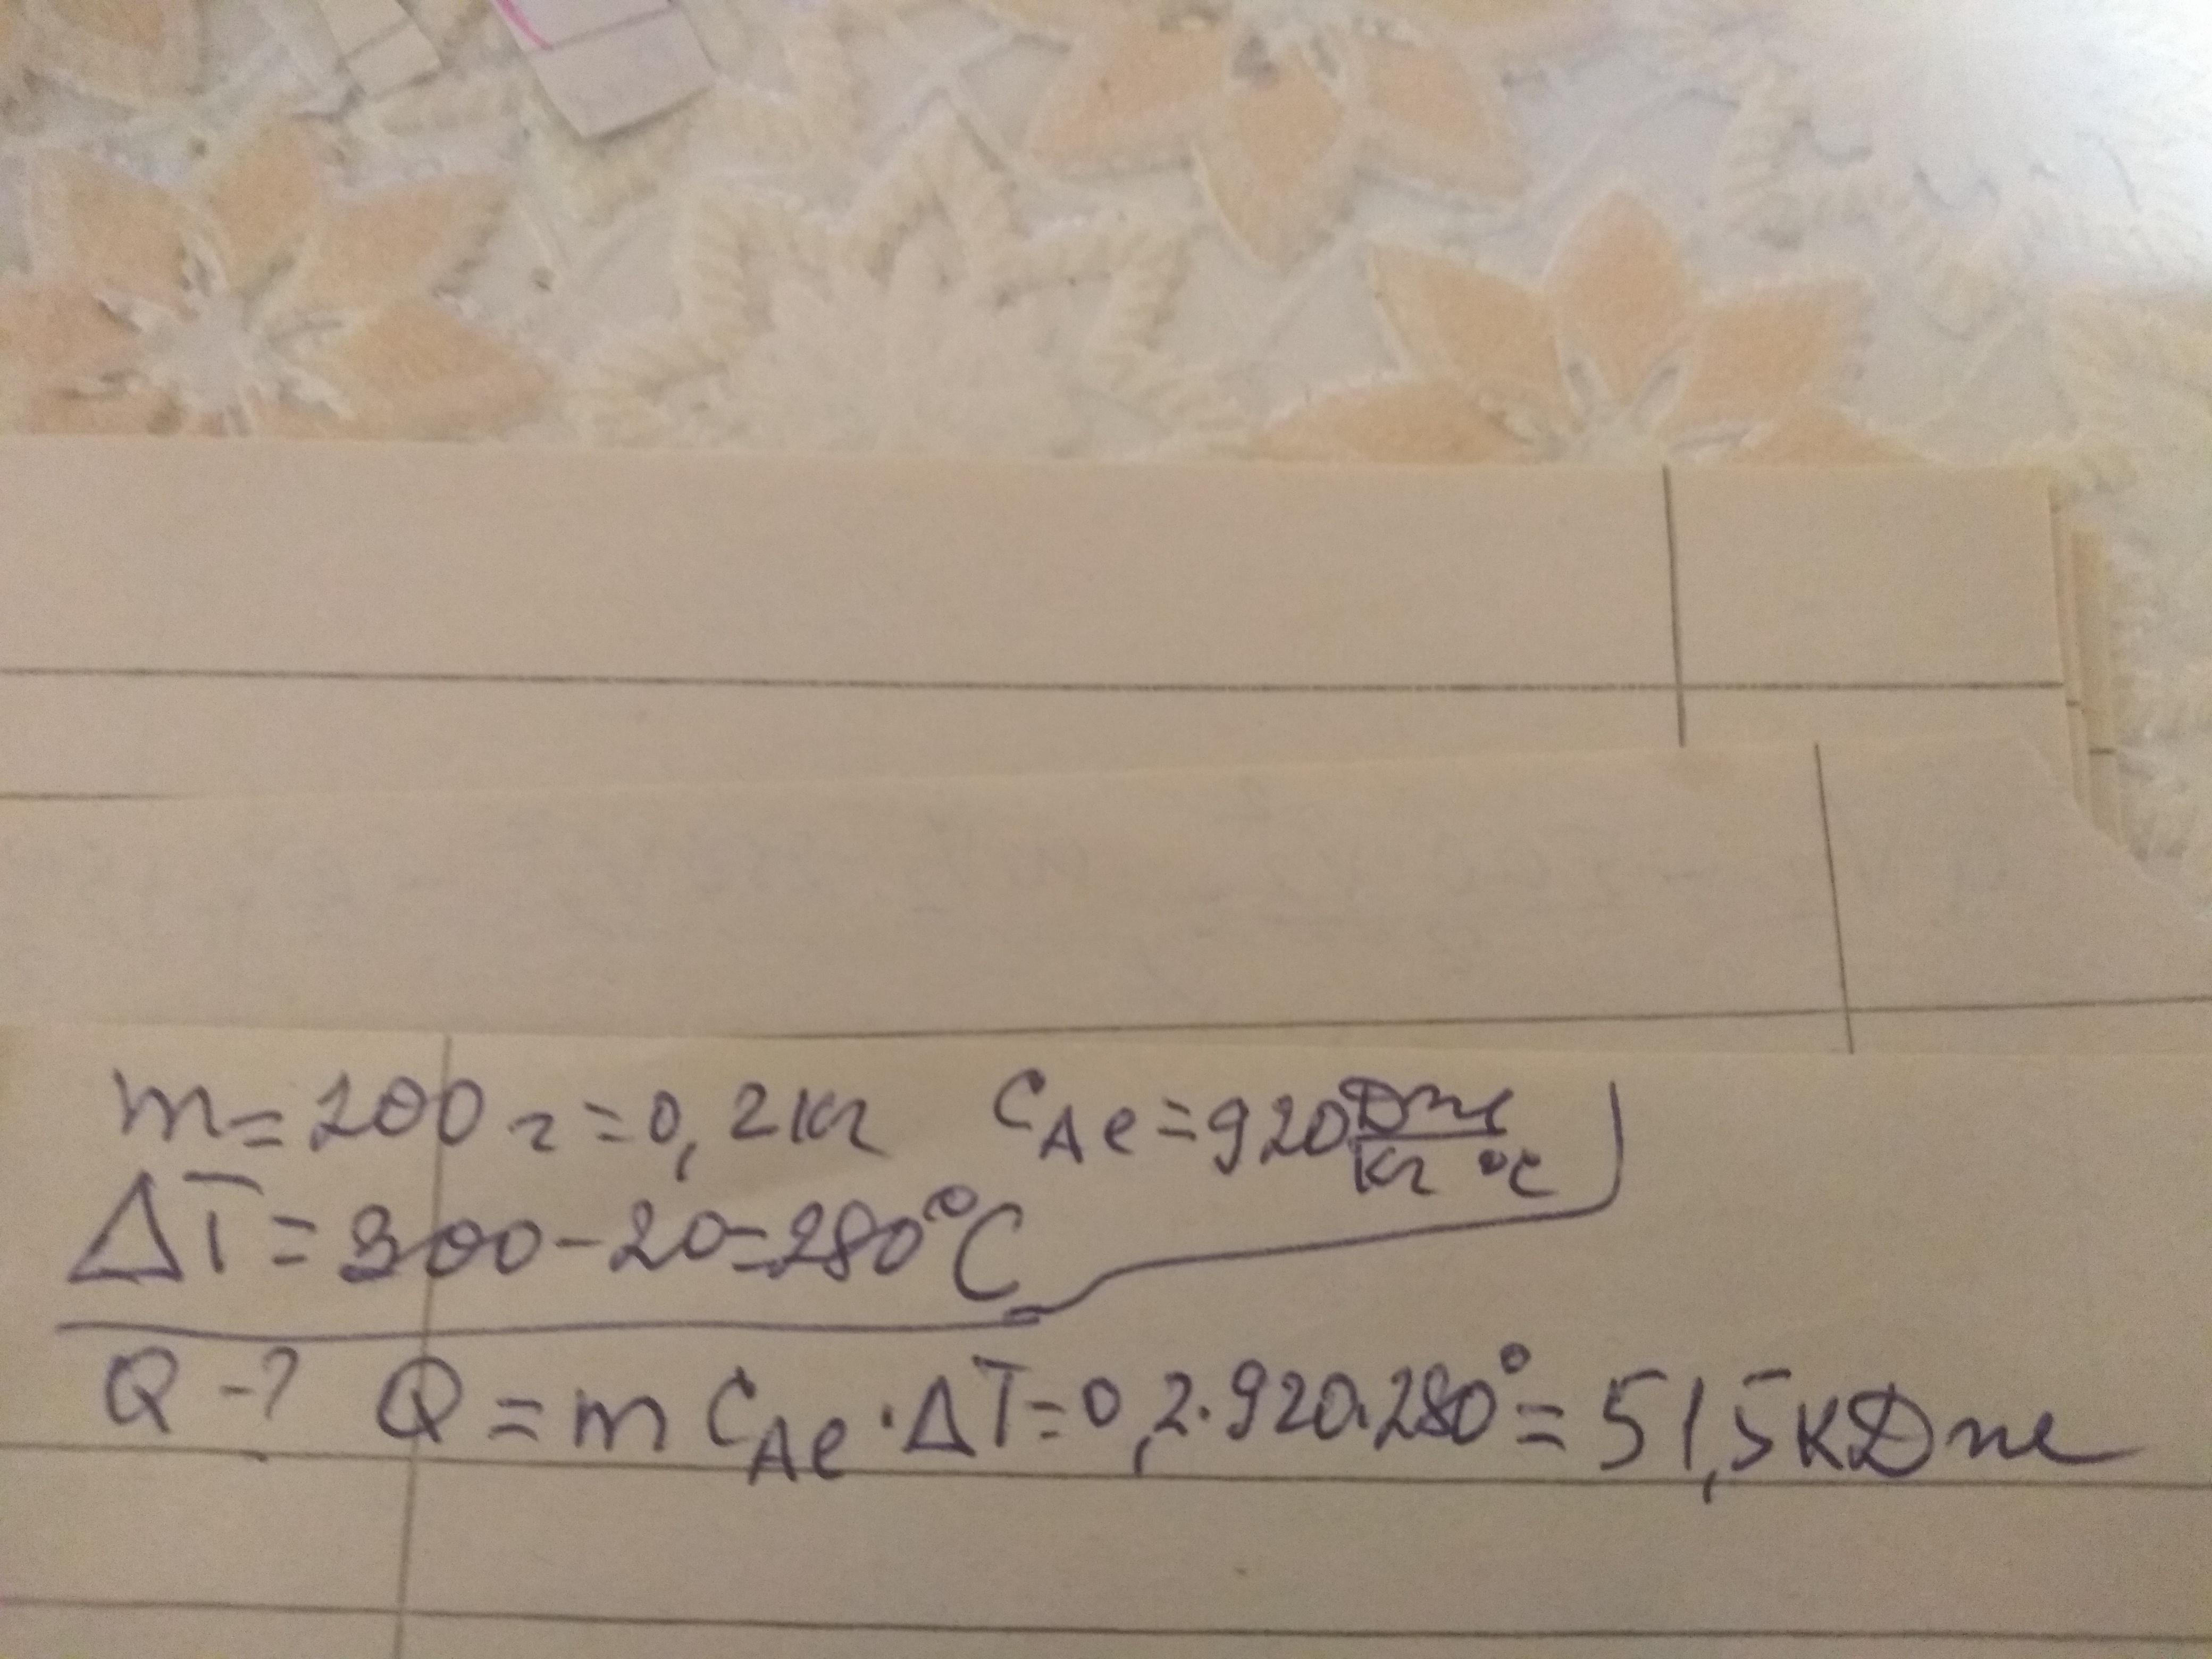 m = 200 г = 0,2 кг C Al = 920 Дж/кг °C
ΔT = 300 - 20 = 280°C
Q - ? Q = m C Al · ΔT = 0,2 · 920 · 280° = 51,5 кДж